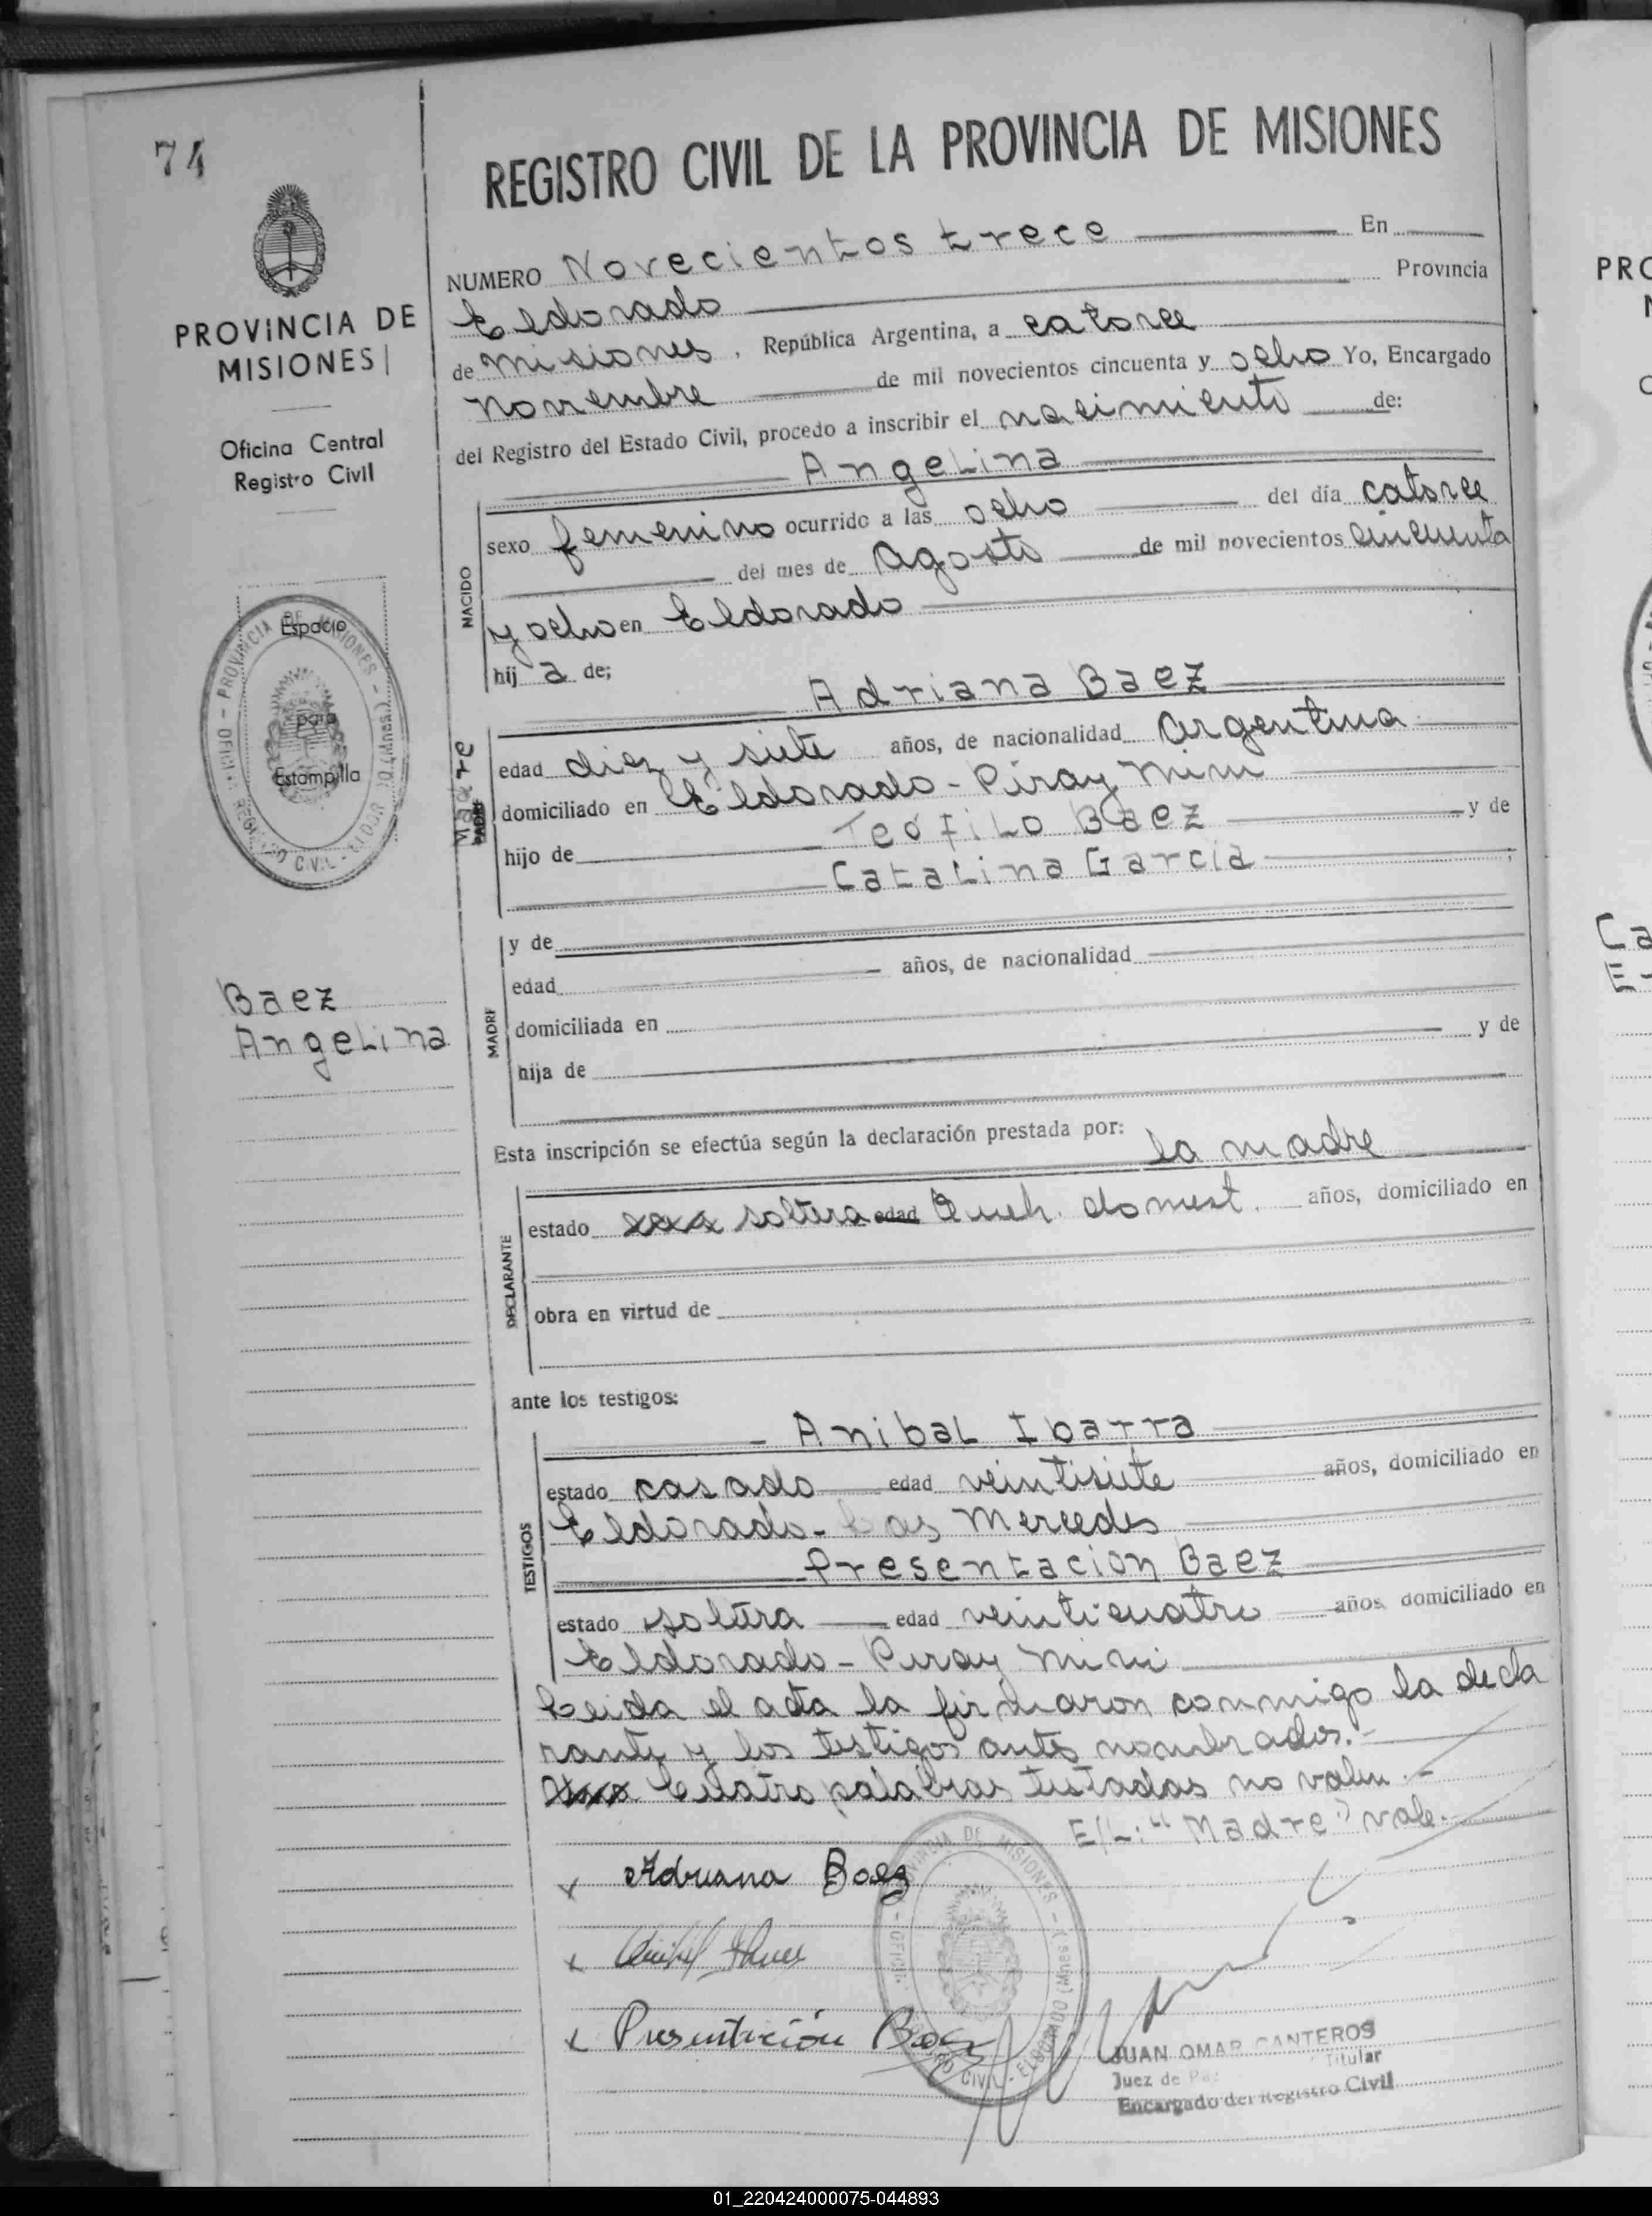 74
PROVINCIA DE
MISIONES
Oficina Central
Registro Civil
Espacio
para
Estampilla
PROVINCIA DE MISIONES - (Misiones)
REGISTRO CIVIL - ELDOR
Baez
Angelina
REGISTRO CIVIL DE LA PROVINCIA DE MISIONES
NUMERO Novecientos trece En
Eldorado Provincia
de Misiones, República Argentina, a catorce
Noviembre de mil novecientos cincuenta y ocho Yo, Encargado
del Registro del Estado Civil, procedo a inscribir el nacimiento de:
Angelina
NACIDO
sexo femenino ocurrido a las ocho del día catorce
del mes de Agosto de mil novecientos cincuenta
y ocho en Eldorado
hij a de;
Adriana Baez
Madre
PADRE
edad diez y siete años, de nacionalidad Argentina
domiciliado en Eldorado - Piray Mini
hijo de Teófilo Baez y de
Catalina Garcia
MADRE
y de
edad años, de nacionalidad
domiciliada en
hija de y de
Esta inscripción se efectúa según la declaración prestada por: la madre
DECLARANTE
estado xxx soltera edad Queh. domest. años, domiciliado en
obra en virtud de
ante los testigos:
Anibal Ibarra
TESTIGOS
estado casado edad veintisiete años, domiciliado en
Eldorado - Las Mercedes
Presentación Baez
estado soltera edad veinticuatro años, domiciliado en
Eldorado - Piray Mini
Leida el acta la firmaron conmigo la decla
rante y los testigos antes nombrados.-
xxxx Cuatro palabras testadas no valen.-
E/L: "Madre" vale.-
x Adriana Baez
x
x Presentación Baez
JUAN OMAR CANTEROS
Juez de Paz Titular
Encargado del Registro Civil
PRO
Ca
E
01_220424000075-044893